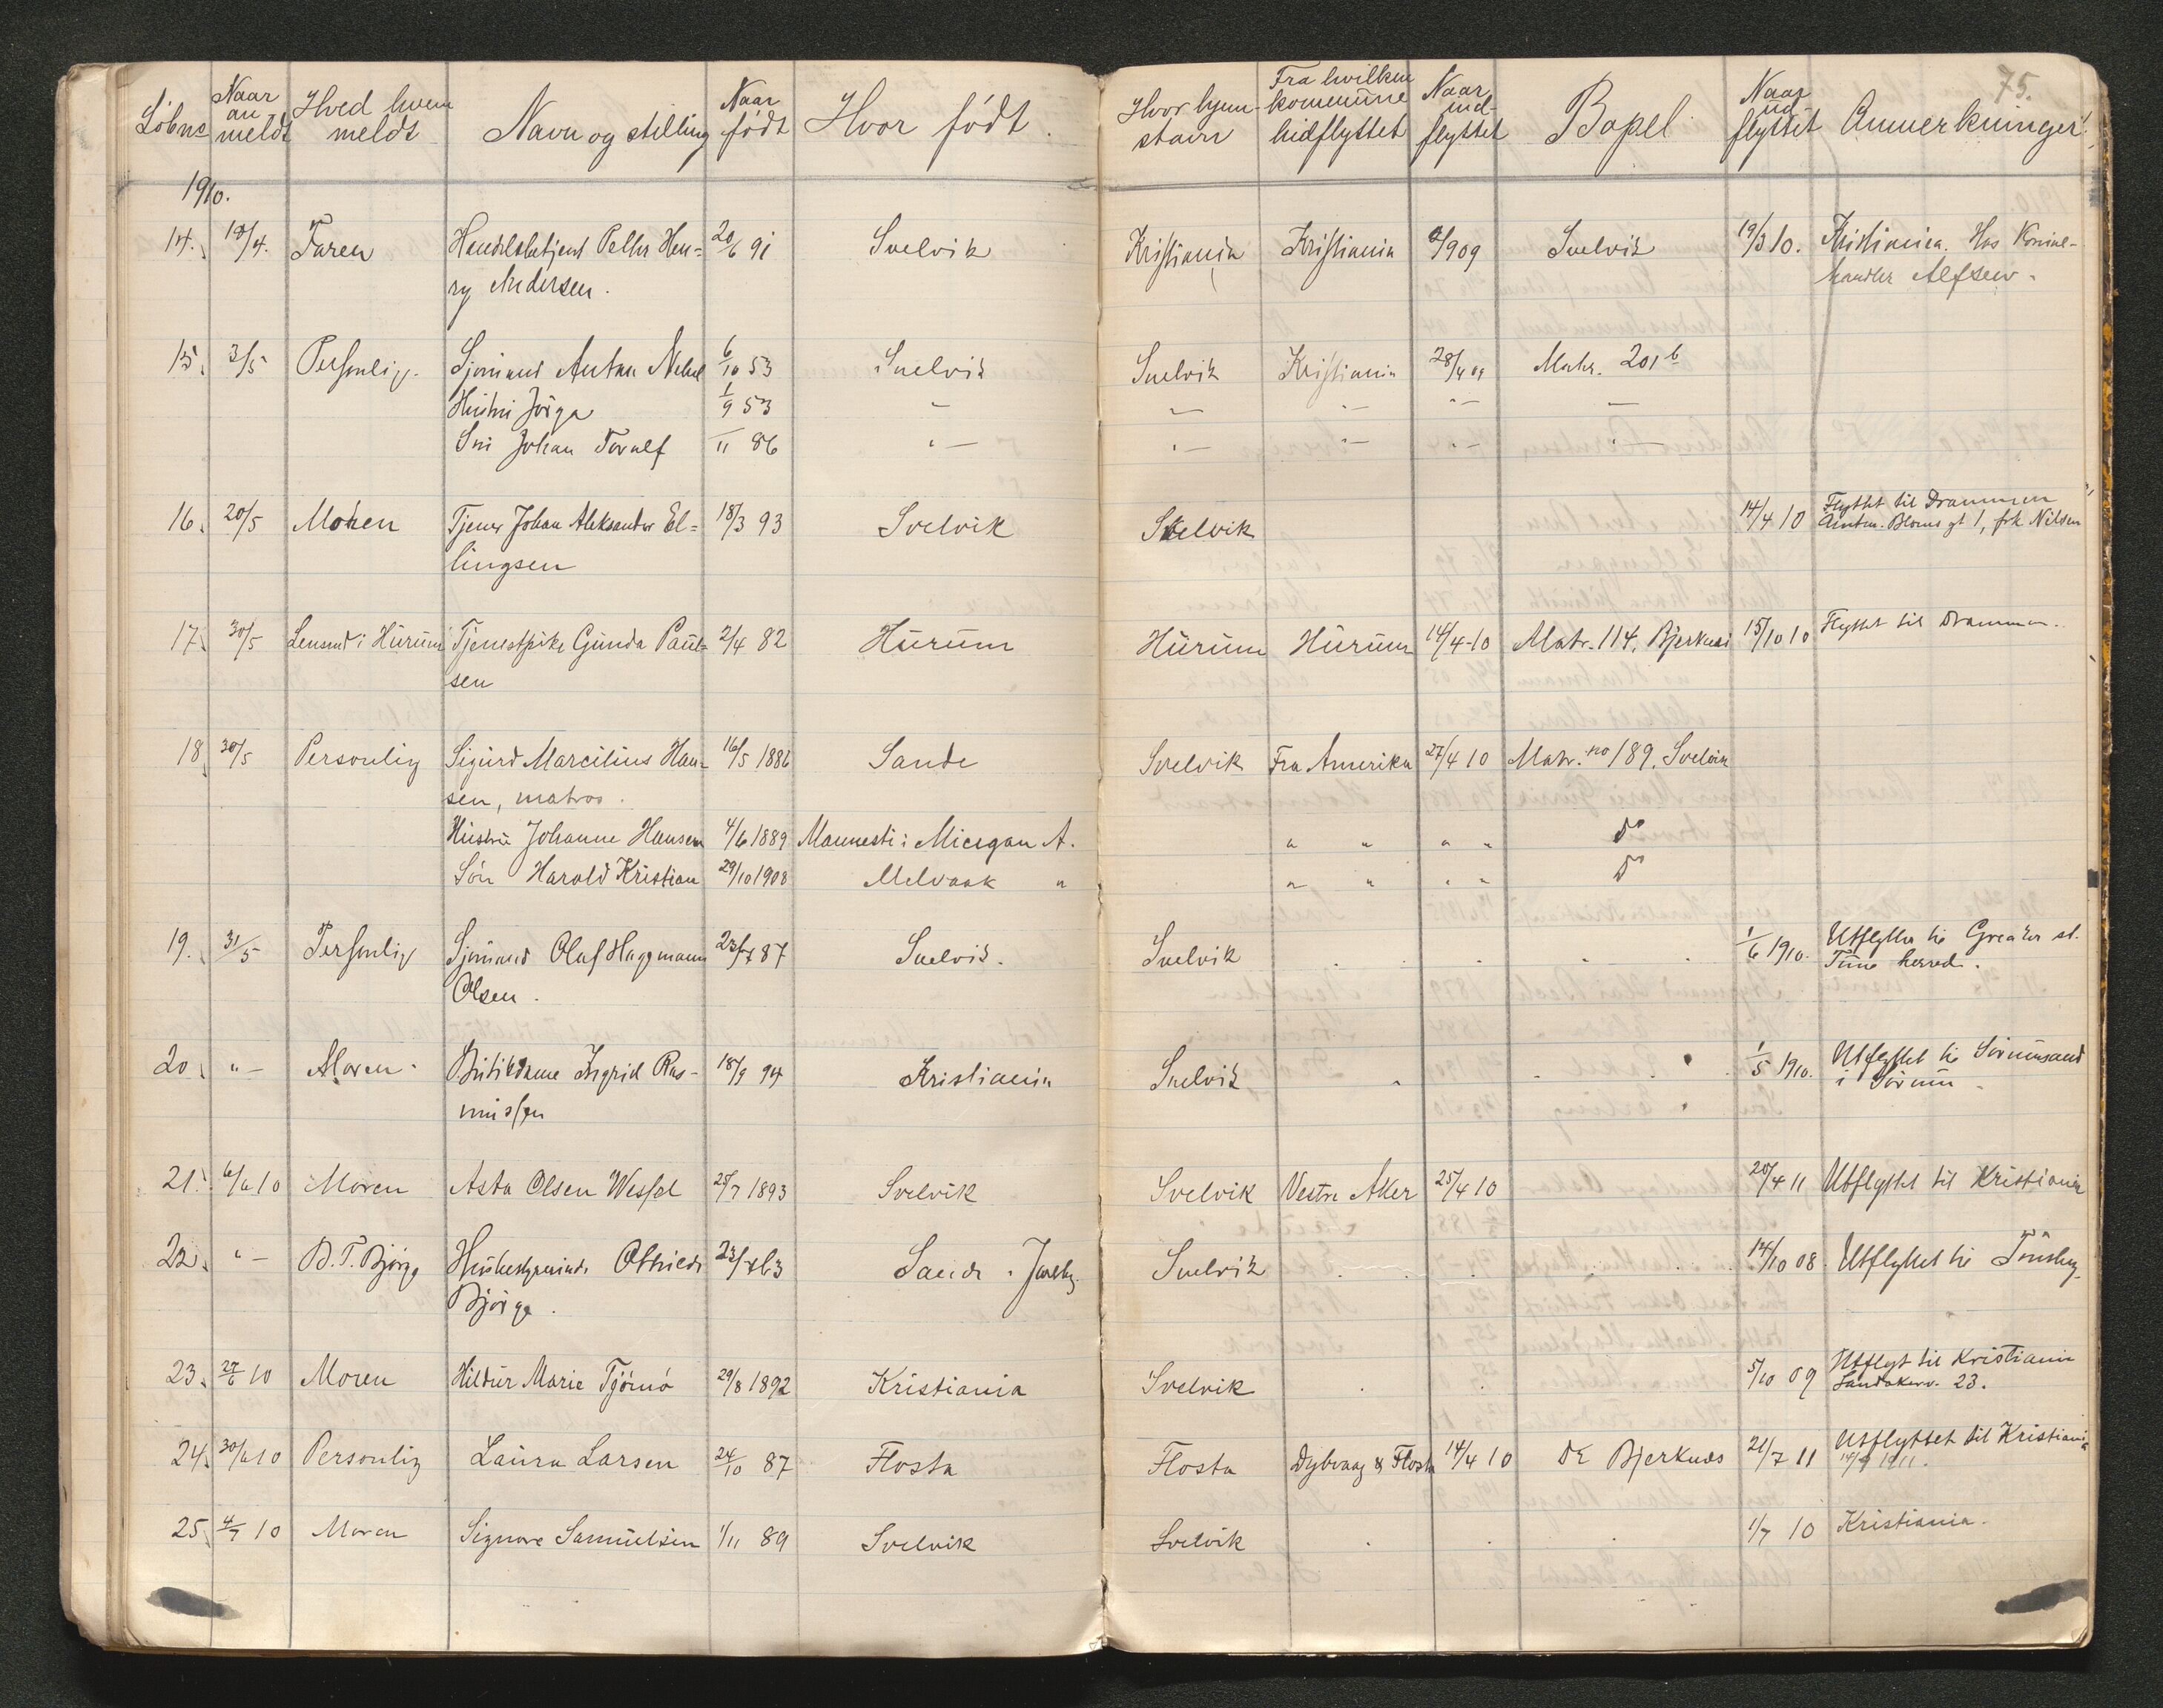 75.
Löbnr Naar anmeldt Hved hvem meldt Navn og stilling Naar födt Hvor födt. Hvor hjemstavn Fra hvilken kommune hidflyttet Naar indflyttet Bopel Naar udflyttet Anmerkninger
1910.
14. 18/4. Faren Handelsbetjent Petter Hen= 20/6 91 Svelvik Kristiania Kristiania 2/909 Svelvik 19/3 10. Kristiania. Hos
ry Andersen. handler Alfsen.
15. 3/5 Personlig. Sjömand Anton 6/10 53 Svelvik Svelvik Kristiania 28/4 09 Matr. 201 b
Hustru Jörga 1/9 53 - " - " - " - -
Sön Johan Toralf 11 86 " - " - " - " - " -
16. 20/5 Moren Tjener Johan Aleksander El= 18/3 93 Svelvik Svelvik 14/4 10 Flyttet til Drammen
lingsen Amtm. Bloms gt 1, frk Nilsen
17. 30/5 Lensmd i Hurum Tjenestpike Gunda Paul= 2/4 82 Hurum Hurum Hurum 14/4-10 Matr. 114. Bjerknes 15/10 10 Flyttet til Drammen.
sen
18. 30/5 Personlig Sigurd Marcilius Han- 16/5 1886 Sande Svelvik Fra Amerika 27/4 10 Matr. no 189. Svelvik
sen, matros.
Hustru Johanne Hansen 4/6 1889 Mannesti i Micegan A. " " " " Do
Sön Harald Kristian 29/10 1908 Melvaak " " " " " Do
19. 31/5 Personlig Sjömand Olaf Haggmann 23/7 87 Svelvik. Svelvik 1/6 1910. Utflyttet til Greaker st.
Olsen. Tune herred.
20. " - Moren. Butikdame Ingrid Ras- 18/9 94 Kristiania Svelvik 1/5 1910. Utflyttet til Sörumsand
mussen i Sörum
21. 6/6 10 Moren Asta Olsen Wessel 25/7 1893 Svelvik Svelvik Vestre Aker 25/4 10 20/4 11 Utflyttet til Kristiania
22. " - B. T. Björge Othilde 23/7 63 Sande i Jarlsbg. Svelvik 14/10 08. Utflyttet til Tönsbeg.
Björge.
23. 27/6 10 Moren Hildur Marie Tjömö 29/8 1892 Kristiania Svelvik 5/10 09 Utflyt til Kristiania
Sandakerv. 23.
24. 30/6 10 Personlig Laura Larsen 24/10 87 Flosta Flosta Dybvaag & Flosta 14/4 10 Bjerknes 21/7 11 Utflyttet til Kristiania
1911.
25. 4/7 10 Moren Signore Samuelsen 1/11 89 Svelvik Svelvik 1/7 10 Kristiania.